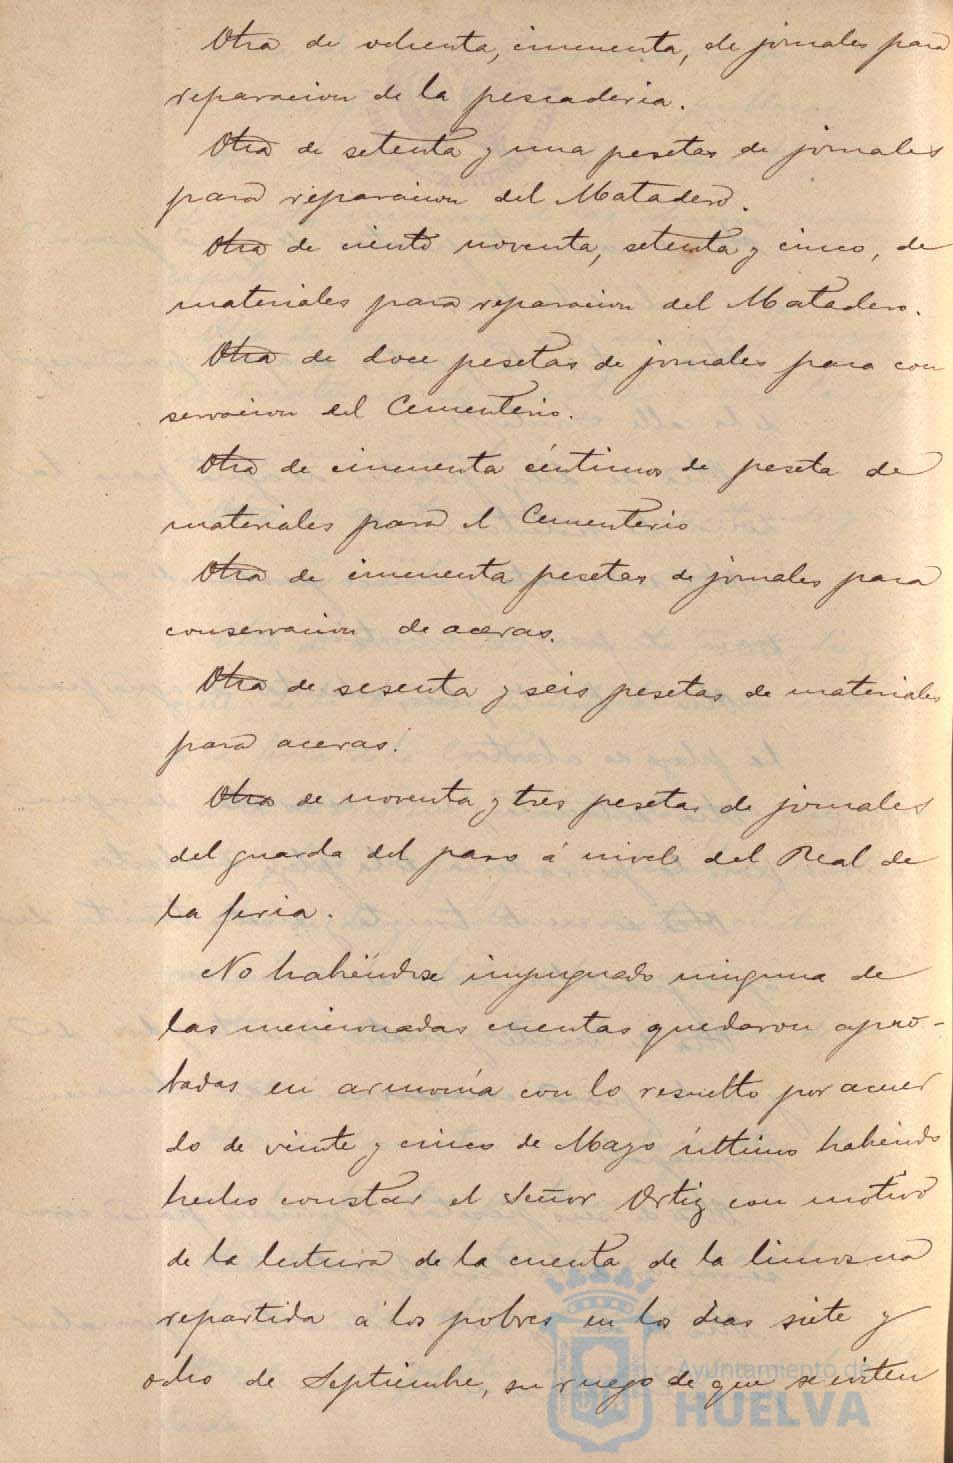 Otra de ochenta, cincuenta, de jornales para
reparacion de la pescaderia.
Otra de setenta y una pesetas de jornales
para reparacion del Matadero.
Otra de ciento noventa, setenta y cinco, de
materiales para reparacion del Matadero.
Otra de doce pesetas de jornales para con
servacion del Cementerio.
Otra de cincuenta céntimos de peseta de
materiales para el Cementerio
Otra de cincuenta pesetas de jornales para
conservacion de aceras.
Otra de sesenta y seis pesetas de materiales
para aceras.
Otra de noventa y tres pesetas de jornales
del guarda del paso á nivel del Real de
la feria.
No habiéndose impugnado ninguna de
las mencionadas cuentas quedaron apro-
badas en armonía con lo resuelto por acuer
do de veinte y cinco de Mayo último habiendo
hecho constar el Señor Ortiz con motivo
de la lectura de la cuenta de la limosna
repartida á los pobres en los dias siete y
ocho de Septiembre, su ruego de que se eviten
Ayuntamiento de
HUELVA